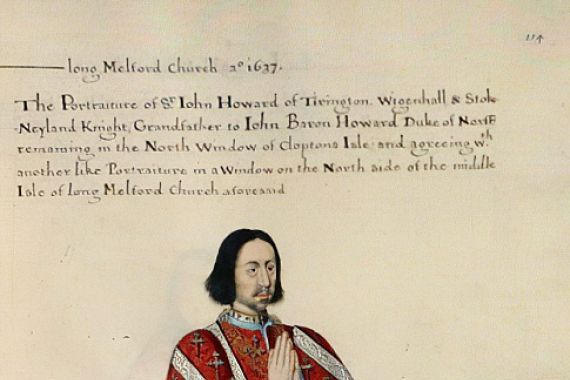 114
long Melford Church Aº 1637.
The Portraiture of Sr. Iohn Howard of Tirington. Wigenhall & Stok-
-Neyland Knight, Grandfather to Iohn Baron Howard Duke of Norff
remaining in the North Window of Cloptons Isle and agreeing wth.
another like Portraiture in a Window on the North side of the middle
Isle of long Melford Church aforesaid